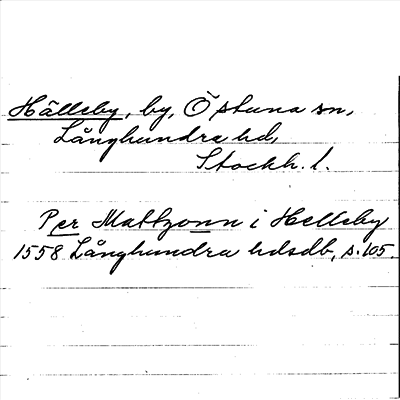 Hällsby, by, Östuna sn,
Långhundra hd,
Stockh. l.
Per Mattzonn i Hellsby
1558 Långhundra hdsdb, s. 105.